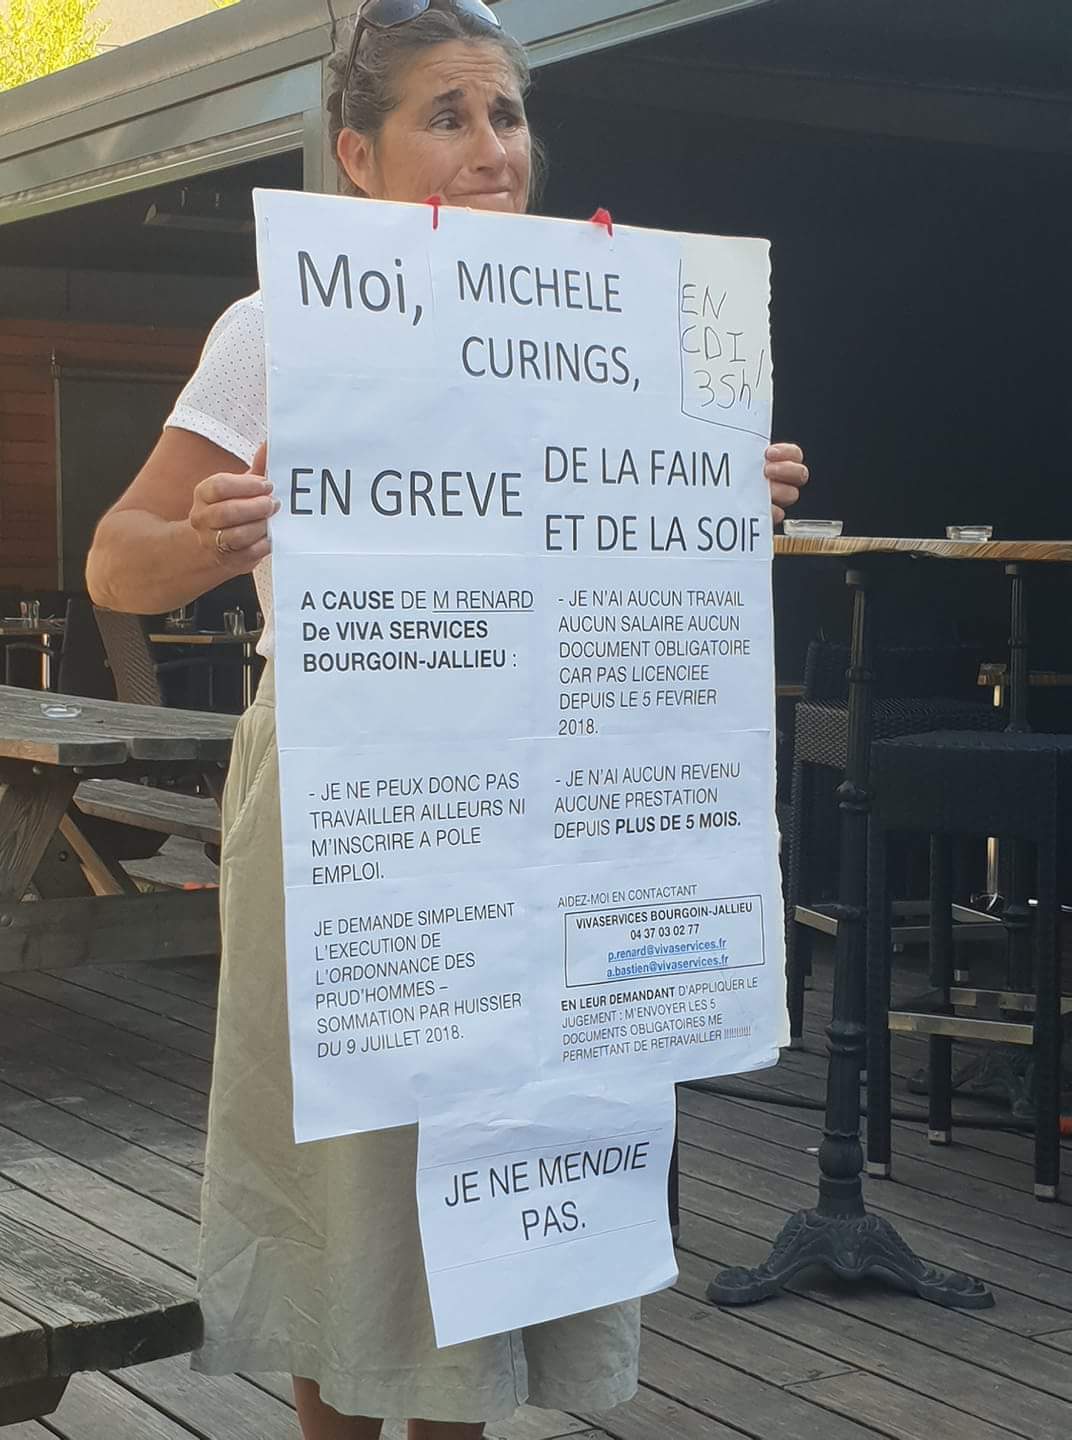 Moi, MICHELE
CURINGS,
EN
CDI
35h!
EN GREVE
DE LA FAIM
ET DE LA SOIF
A CAUSE DE M RENARD
De VIVA SERVICES
BOURGOIN-JALLIEU :
- JE N'AI AUCUN TRAVAIL
AUCUN SALAIRE AUCUN
DOCUMENT OBLIGATOIRE
CAR PAS LICENCIEE
DEPUIS LE 5 FEVRIER
2018.
- JE NE PEUX DONC PAS
TRAVAILLER AILLEURS NI
M'INSCRIRE A POLE
EMPLOI.
- JE N'AI AUCUN REVENU
AUCUNE PRESTATION
DEPUIS PLUS DE 5 MOIS.
JE DEMANDE SIMPLEMENT
L'EXECUTION DE
L'ORDONNANCE DES
PRUD'HOMMES –
SOMMATION PAR HUISSIER
DU 9 JUILLET 2018.
AIDEZ-MOI EN CONTACTANT
VIVASERVICES BOURGOIN-JALLIEU
04 37 03 02 77
p.renard@vivaservices.fr
a.bastien@vivaservices.fr
EN LEUR DEMANDANT D'APPLIQUER LE
JUGEMENT : M'ENVOYER LES 5
DOCUMENTS OBLIGATOIRES ME
PERMETTANT DE RETRAVAILLER !!!!!!!!!!!
JE NE MENDIE
PAS.